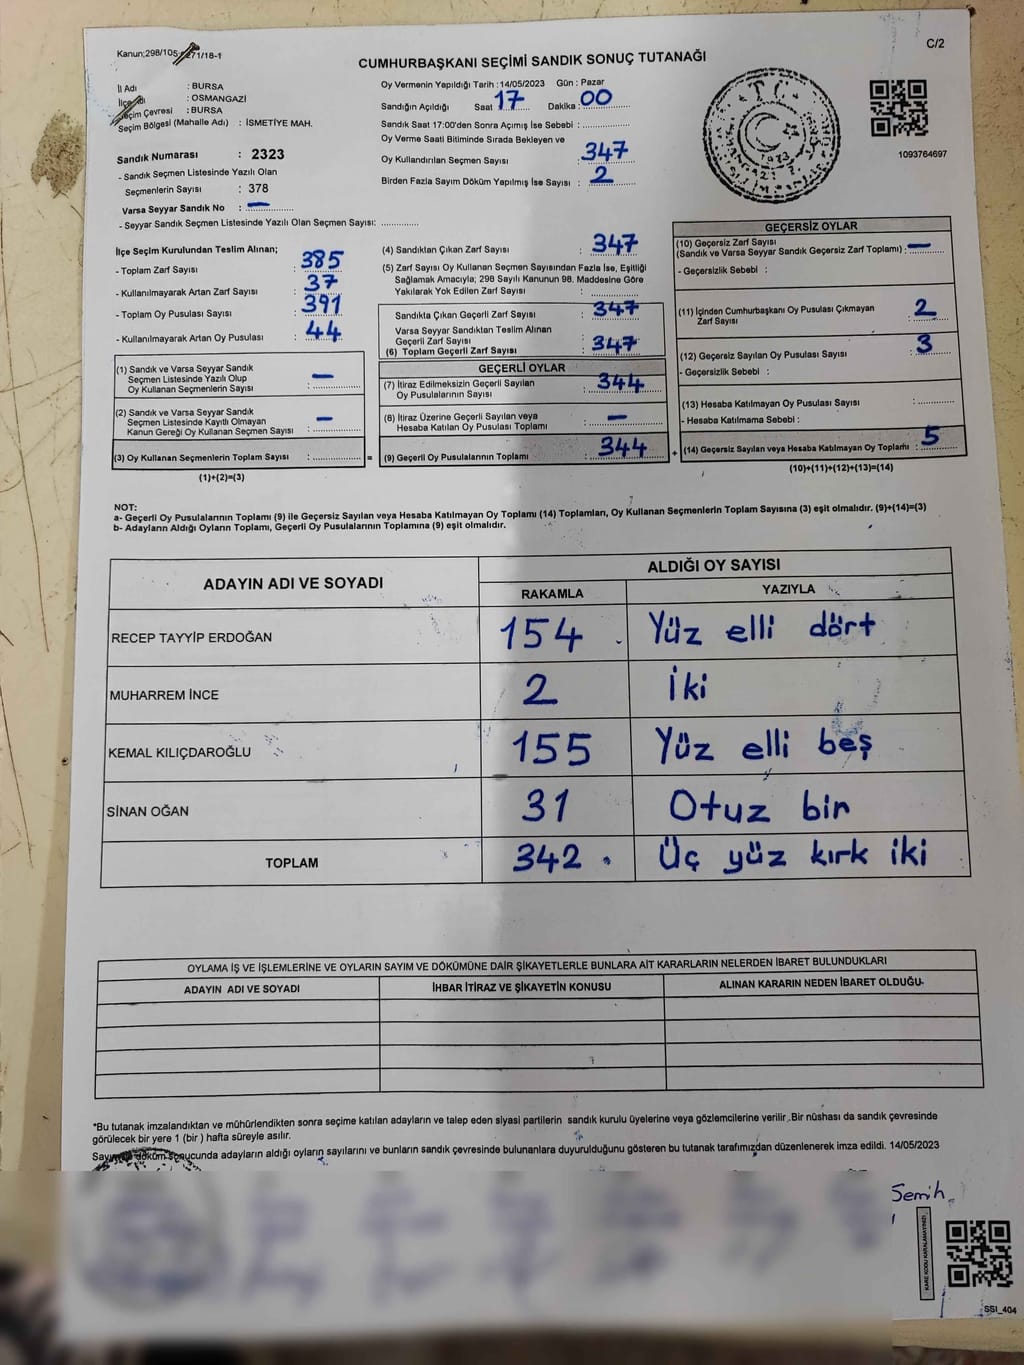 Kanun:298/105- 271/18-1
C/2
CUMHURBAŞKANI SEÇİMİ SANDIK SONUÇ TUTANAĞI
İl Adı : BURSA
İlçe Adı : OSMANGAZİ
Seçim Çevresi : BURSA
Seçim Bölgesi (Mahalle Adı) : İSMETİYE MAH.
Sandık Numarası : 2323
- Sandık Seçmen Listesinde Yazılı Olan
Seçmenlerin Sayısı : 378
Varsa Seyyar Sandık No : —
- Seyyar Sandık Seçmen Listesinde Yazılı Olan Seçmen Sayısı: ............
Oy Vermenin Yapıldığı Tarih : 14/05/2023 Gün : Pazar
Sandığın Açıldığı Saat 17 Dakika : 00
Sandık Saat 17:00'den Sonra Açımış İse Sebebi : ............
Oy Verme Saati Bitiminde Sırada Bekleyen ve
Oy Kullandırılan Seçmen Sayısı : 347
Birden Fazla Sayım Döküm Yapılmış İse Sayısı : 2
1093764697
İlçe Seçim Kurulundan Teslim Alınan;
- Toplam Zarf Sayısı : 385
- Kullanılmayarak Artan Zarf Sayısı : 37
- Toplam Oy Pusulası Sayısı : 391
- Kullanılmayarak Artan Oy Pusulası : 44
(1) Sandık ve Varsa Seyyar Sandık
Seçmen Listesinde Yazılı Olup
Oy Kullanan Seçmenlerin Sayısı : —
(2) Sandık ve Varsa Seyyar Sandık
Seçmen Listesinde Kayıtlı Olmayan
Kanun Gereği Oy Kullanan Seçmen Sayısı : —
(3) Oy Kullanan Seçmenlerin Toplam Sayısı : ............ =
(1)+(2)=(3)
(4) Sandıktan Çıkan Zarf Sayısı : 347
(5) Zarf Sayısı Oy Kullanan Seçmen Sayısından Fazla İse, Eşitliği
Sağlamak Amacıyla; 298 Sayılı Kanunun 98. Maddesine Göre
Yakılarak Yok Edilen Zarf Sayısı : ............
Sandıkta Çıkan Geçerli Zarf Sayısı : 347
Varsa Seyyar Sandıktan Teslim Alınan
Geçerli Zarf Sayısı
(6) Toplam Geçerli Zarf Sayısı : 347
GEÇERLİ OYLAR
(7) İtiraz Edilmeksizin Geçerli Sayılan
Oy Pusulalarının Sayısı : 344
(8) İtiraz Üzerine Geçerli Sayılan veya
Hesaba Katılan Oy Pusulası Toplamı : —
(9) Geçerli Oy Pusulalarının Toplamı : 344 +
GEÇERSİZ OYLAR
(10) Geçersiz Zarf Sayısı
(Sandık ve Varsa Seyyar Sandık Geçersiz Zarf Toplamı) : —
- Geçersizlik Sebebi :
(11) İçinden Cumhurbaşkanı Oy Pusulası Çıkmayan
Zarf Sayısı : 2
(12) Geçersiz Sayılan Oy Pusulası Sayısı : 3
- Geçersizlik Sebebi :
(13) Hesaba Katılmayan Oy Pusulası Sayısı : ............
- Hesaba Katılmama Sebebi :
(14) Geçersiz Sayılan veya Hesaba Katılmayan Oy Toplamı : 5
(10)+(11)+(12)+(13)=(14)
NOT:
a- Geçerli Oy Pusulalarının Toplamı (9) ile Geçersiz Sayılan veya Hesaba Katılmayan Oy Toplamı (14) Toplamları, Oy Kullanan Seçmenlerin Toplam Sayısına (3) eşit olmalıdır. (9)+(14)=(3)
b- Adayların Aldığı Oyların Toplamı, Geçerli Oy Pusulalarının Toplamına (9) eşit olmalıdır.
ADAYIN ADI VE SOYADI
ALDIĞI OY SAYISI
RAKAMLA YAZIYLA
RECEP TAYYİP ERDOĞAN 154 Yüz elli dört
MUHARREM İNCE 2 İki
KEMAL KILIÇDAROĞLU 155 Yüz elli beş
SİNAN OĞAN 31 Otuz bir
TOPLAM 342 Üç yüz kırk iki
OYLAMA İŞ VE İŞLEMLERİNE VE OYLARIN SAYIM VE DÖKÜMÜNE DAİR ŞİKAYETLERLE BUNLARA AİT KARARLARIN NELERDEN İBARET BULUNDUKLARI
ADAYIN ADI VE SOYADI İHBAR İTİRAZ VE ŞİKAYETİN KONUSU ALINAN KARARIN NEDEN İBARET OLDUĞU
*Bu tutanak imzalandıktan ve mühürlendikten sonra seçime katılan adayların ve talep eden siyasi partilerin sandık kurulu üyelerine veya gözlemcilerine verilir. Bir nüshası da sandık çevresinde
görülecek bir yere 1 (bir ) hafta süreyle asılır.
Sayım ve döküm sonucunda adayların aldığı oyların sayılarını ve bunların sandık çevresinde bulunanlara duyurulduğunu gösteren bu tutanak tarafımızdan düzenlenerek imza edildi. 14/05/2023
Semih
KARE KODU KARALAMAYINIZ!
SSI_404